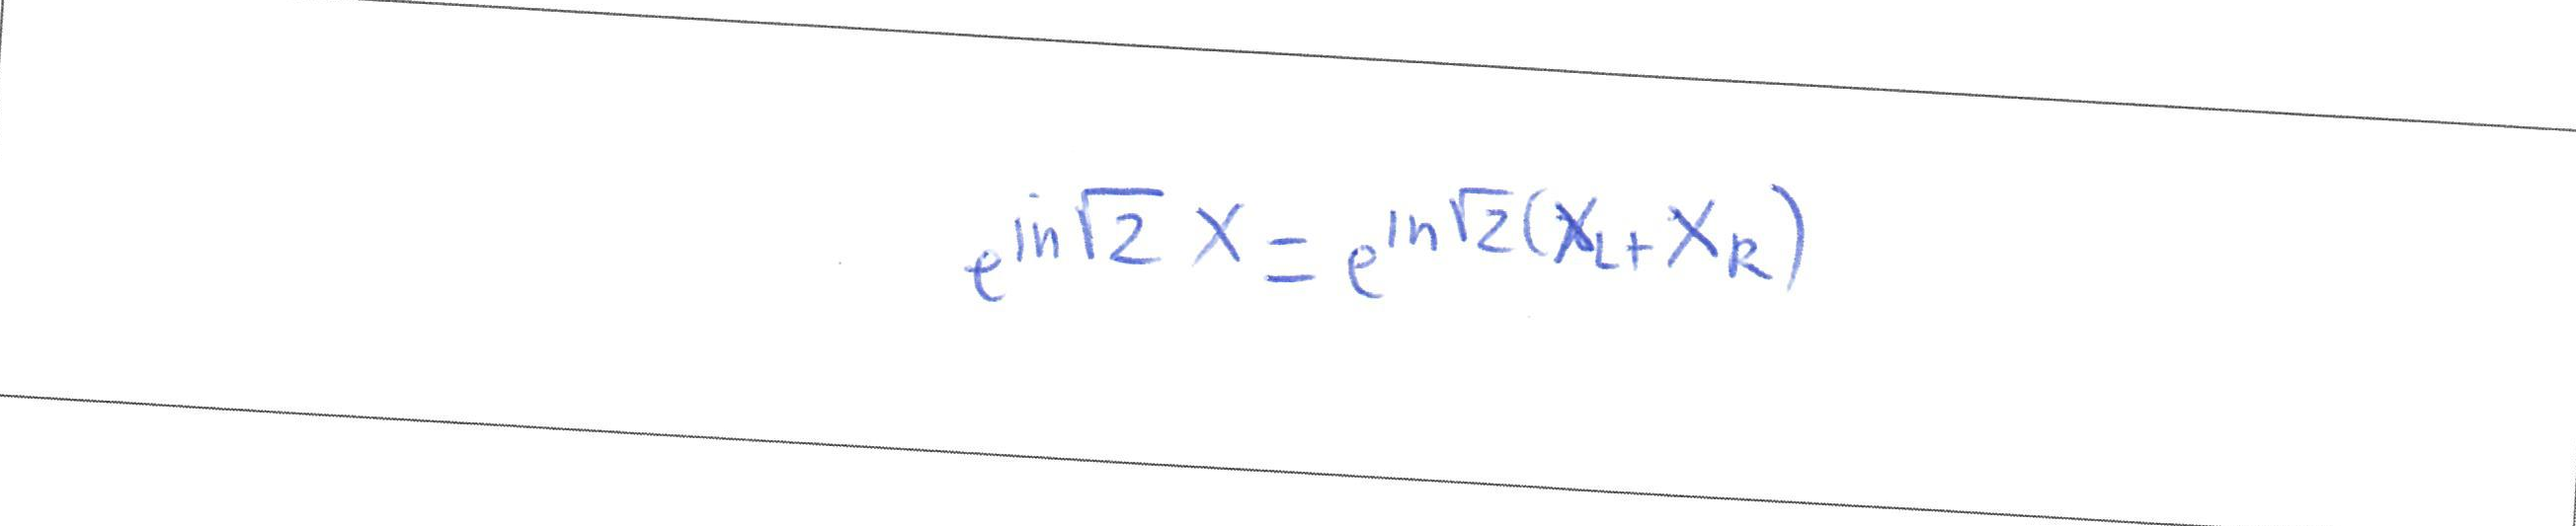 $e^{in\sqrt{2}X} = e^{in\sqrt{2}(X_L + X_R)}$